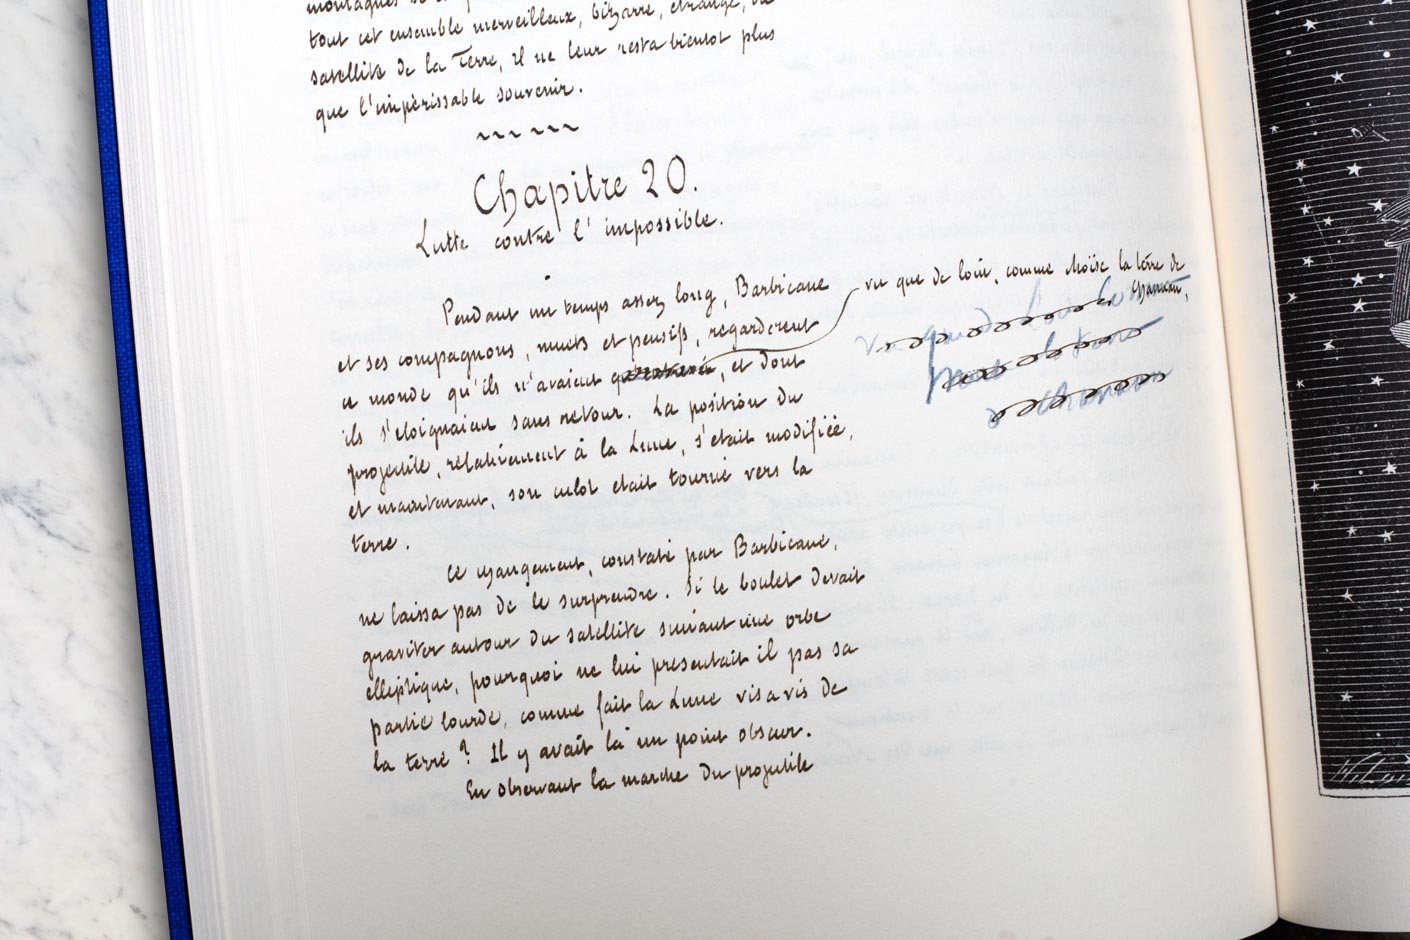 montagnes
tout cet ensemble merveilleux, bizarre, étrange, du
satellite de la Terre, il ne leur resta bientot plus
que l'impérissable souvenir.
~~~ ~~~
Chapitre 20.
Lutte contre l'impossible.
Pendant un temps assez long, Barbicane
et ses compagnons, muets et pensifs, regarderent
ce monde qu'ils n'avaient vu que de loin, comme Moïse la terre de
Chanaan,
, et dont
ils s'eloignaient sans retour. La position du
projectile, relativement à la Lune, s'était modifiée,
et maintenant, son culot etait tourné vers la
terre.
Ce changement, constaté par Barbicane,
ne laissa pas de le surprendre. Si le boulet devait
graviter autour du satellite suivant une orbe
elliptique, pourquoi ne lui presentait il pas sa
partie lourde, comme fait la Lune vis a vis de
la terre ? Il y avait là un point obscur.
En observant la marche du projectile